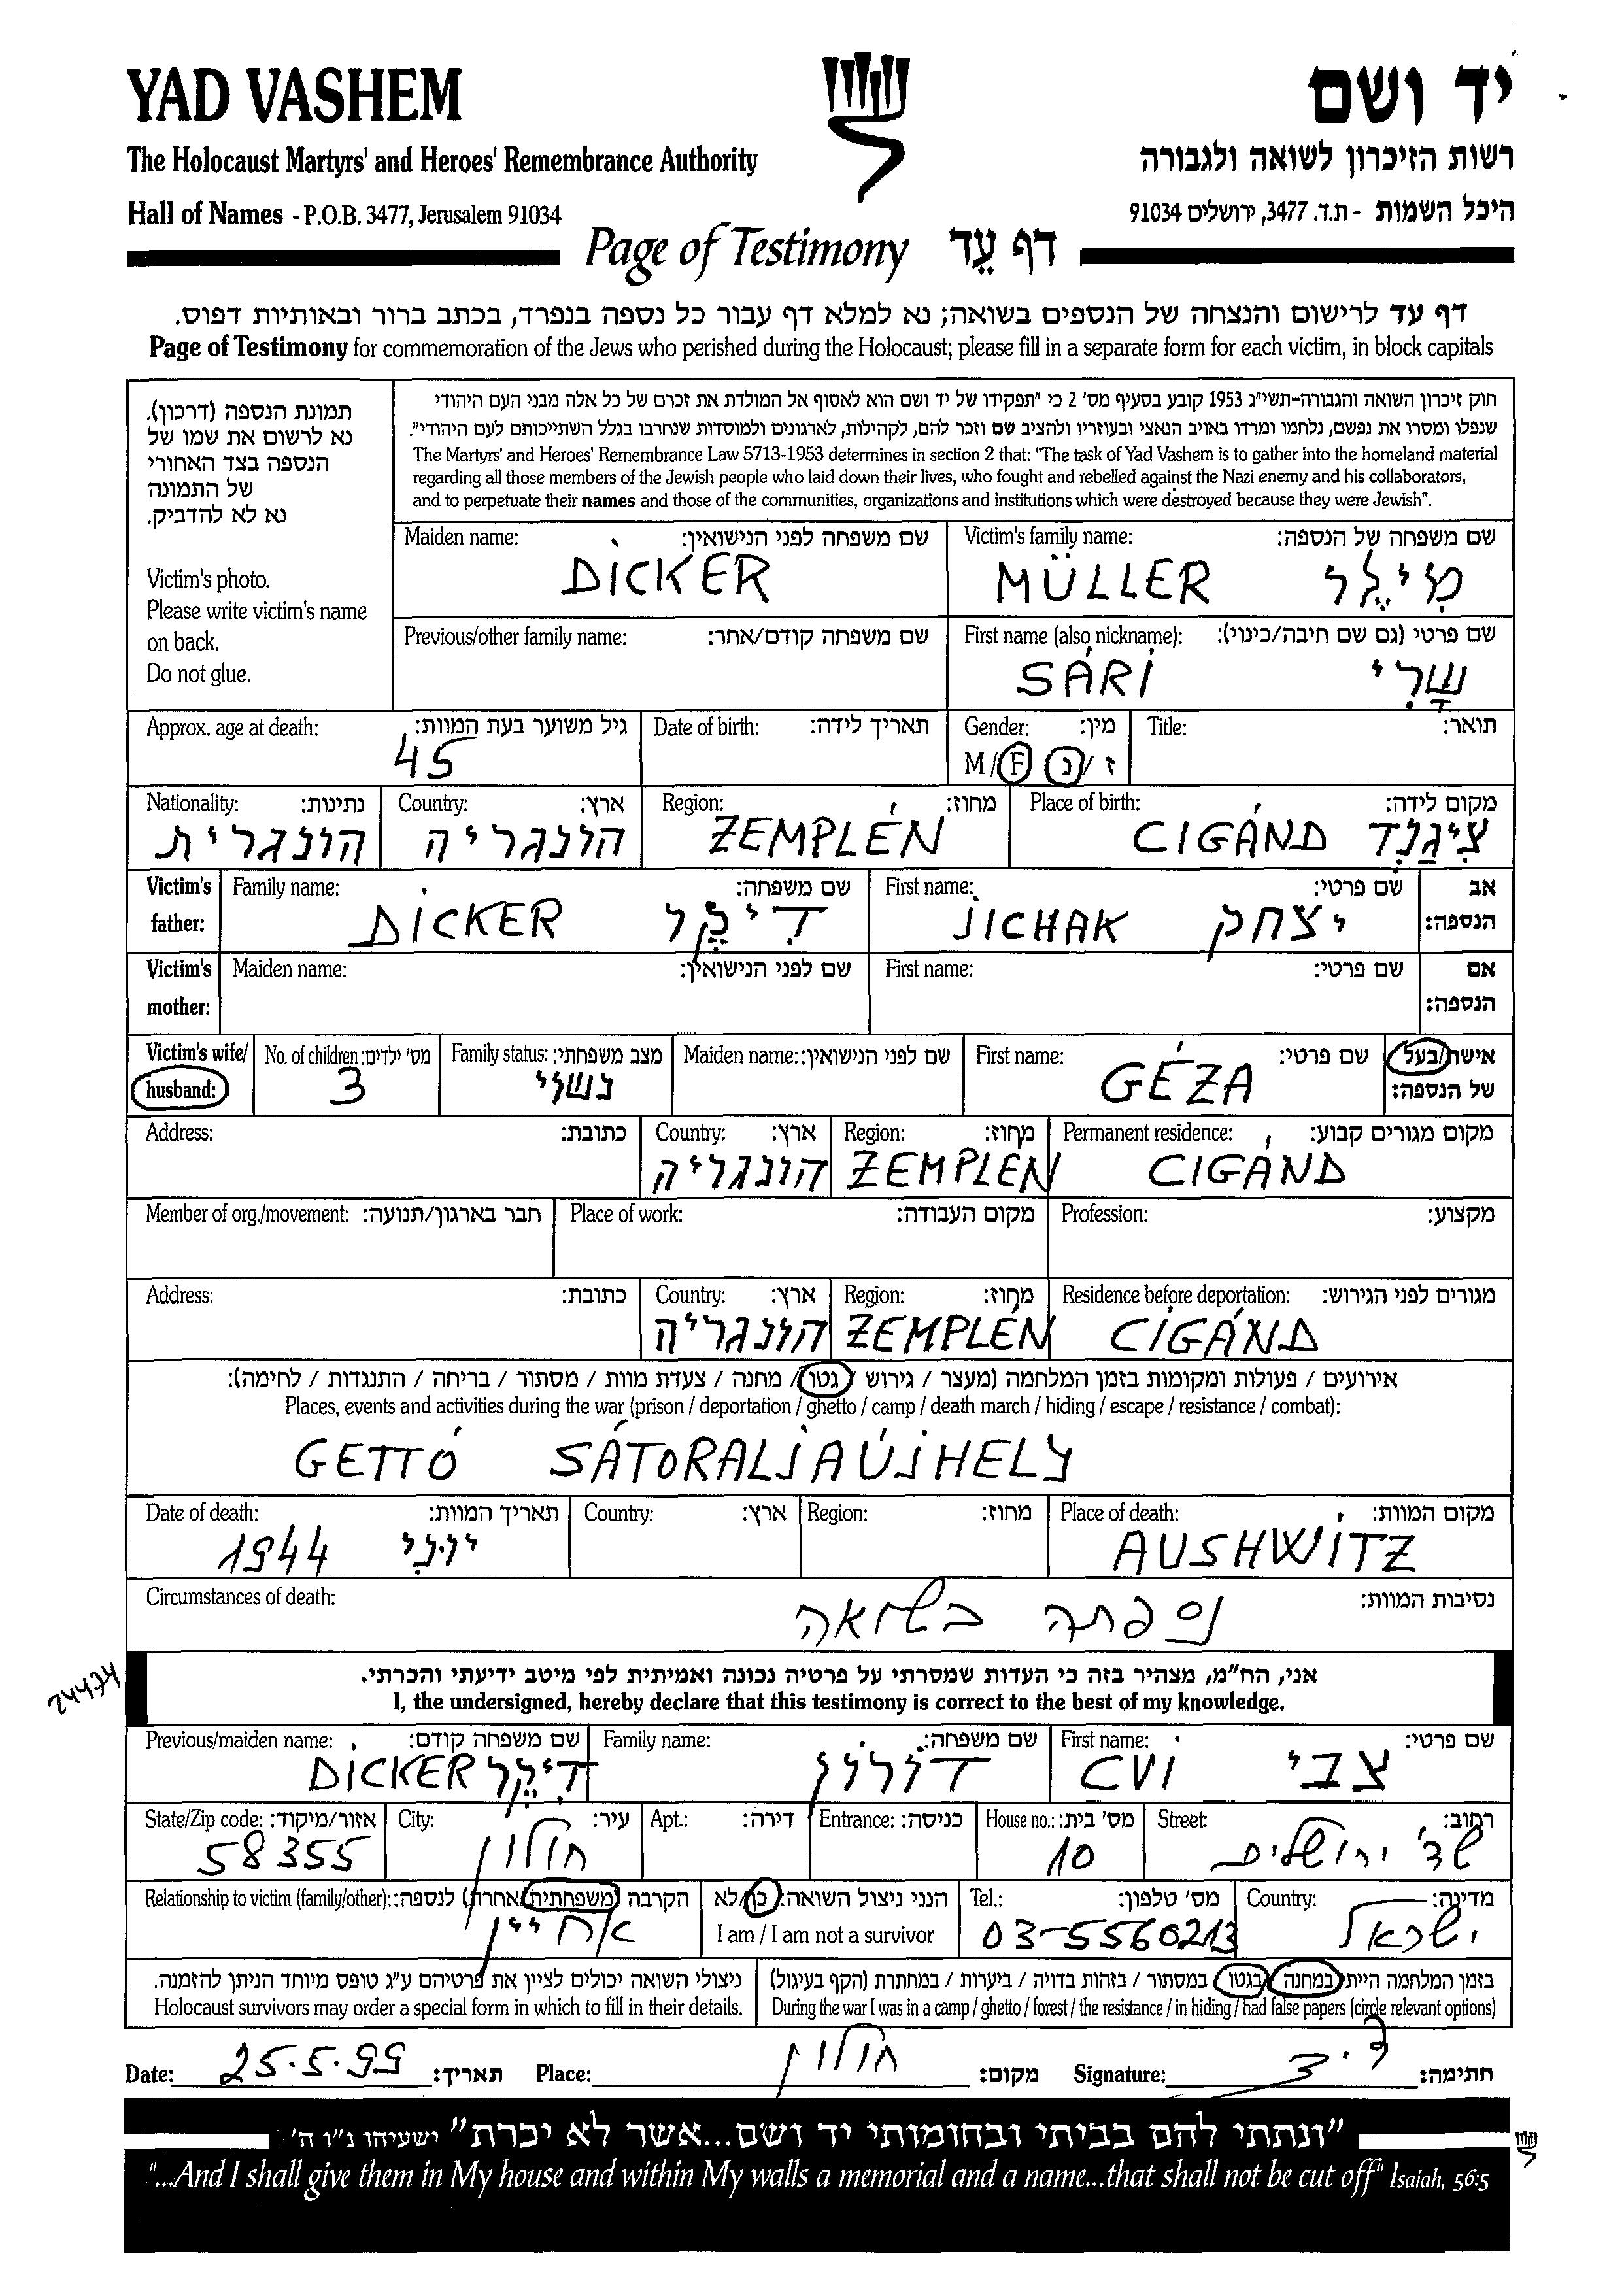 YAD VASHEM
יד ושם
The Holocaust Martyrs' and Heroes' Remembrance Authority
רשות הזיכרון לשואה ולגבורה
Hall of Names - P.O.B. 3477, Jerusalem 91034
היכל השמות - ת.ד. 3477, ירושלים 91034
Page of Testimony דף עֵד
דף עד לרישום והנצחה של הנספים בשואה; נא למלא דף עבור כל נספה בנפרד, בכתב ברור ובאותיות דפוס.
Page of Testimony for commemoration of the Jews who perished during the Holocaust; please fill in a separate form for each victim, in block capitals
תמונת הנספה (דרכון).
נא לרשום את שמו של
הנספה בצד האחורי
של התמונה
נא לא להדביק.
Victim's photo.
Please write victim's name
on back.
Do not glue.
חוק זיכרון השואה והגבורה-תשי"ג 1953 קובע בסעיף מס' 2 כי "תפקידו של יד ושם הוא לאסוף אל המולדת את זכרם של כל אלה מבני העם היהודי
שנפלו ומסרו את נפשם, נלחמו ומרדו באויב הנאצי ובעוזריו ולהציב שם וזכר להם, לקהילות, לארגונים ולמוסדות שנחרבו בגלל השתייכותם לעם היהודי".
The Martyrs' and Heroes' Remembrance Law 5713-1953 determines in section 2 that: "The task of Yad Vashem is to gather into the homeland material
regarding all those members of the Jewish people who laid down their lives, who fought and rebelled against the Nazi enemy and his collaborators,
and to perpetuate their names and those of the communities, organizations and institutions which were destroyed because they were Jewish".
Maiden name: שם משפחה לפני הנישואין:
DICKER
Victim's family name: שם משפחה של הנספה:
MÜLLER מִילֶר
Previous/other family name: שם משפחה קודם/אחר:
First name (also nickname): שם פרטי (גם שם חיבה/כינוי):
SÁRI שָרִי
Approx. age at death: גיל משוער בעת המוות:
45
Date of birth: תאריך לידה:
Gender: מין:
M / F ז / נ
Title: תואר:
Nationality: נתינות:
הונגרית
Country: ארץ:
הונגריה
Region: מחוז:
ZEMPLÉN
Place of birth: מקום לידה:
CIGÁND צִיגַנְד
Victim's father:
Family name: שם משפחה:
DICKER דִיקֶר
First name: שם פרטי:
JICHAK יצחק
אב הנספה:
Victim's mother:
Maiden name: שם לפני הנישואין:
First name: שם פרטי:
אם הנספה:
Victim's wife/ husband:
No. of children: מס' ילדים:
3
Family status: מצב משפחתי:
נשוי
Maiden name: שם לפני הנישואין:
First name: שם פרטי:
GÉZA
אישה/בעל של הנספה:
Address: כתובת:
Country: ארץ:
הונגריה
Region: מחוז:
ZEMPLÉN
Permanent residence: מקום מגורים קבוע:
CIGÁND
Member of org./movement: חבר בארגון/תנועה:
Place of work: מקום העבודה:
Profession: מקצוע:
Address: כתובת:
Country: ארץ:
הונגריה
Region: מחוז:
ZEMPLÉN
Residence before deportation: מגורים לפני הגירוש:
CIGÁND
אירועים / פעולות ומקומות בזמן המלחמה (מעצר / גירוש / גטו / מחנה / צעדת מוות / מסתור / בריחה / התנגדות / לחימה):
Places, events and activities during the war (prison / deportation / ghetto / camp / death march / hiding / escape / resistance / combat):
GETTÓ SÁTORALJAÚJHELY
Date of death: תאריך המוות:
1944 יוני
Country: ארץ:
Region: מחוז:
Place of death: מקום המוות:
AUSHWITZ
Circumstances of death: נסיבות המוות:
נספתה בשואה
24474
אני, הח"מ, מצהיר בזה כי העדות שמסרתי על פרטיה נכונה ואמיתית לפי מיטב ידיעתי והכרתי.
I, the undersigned, hereby declare that this testimony is correct to the best of my knowledge.
Previous/maiden name: שם משפחה קודם:
DICKER דִיקֶר
Family name: שם משפחה:
דורון
First name: שם פרטי:
CVI צבי
State/Zip code: אזור/מיקוד:
58355
City: עיר:
חולון
Apt.: דירה:
Entrance: כניסה:
House no.: מס' בית:
10
Street: רחוב:
שד' ירושלים
Relationship to victim (family/other): הקרבה (משפחתית/אחרת) לנספה:
אחיין
הנני ניצול השואה: כן/לא
I am / I am not a survivor
Tel.: מס' טלפון:
03-5560213
Country: מדינה:
ישראל
ניצולי השואה יכולים לציין את פרטיהם ע"ג טופס מיוחד הניתן להזמנה.
Holocaust survivors may order a special form in which to fill in their details.
בזמן המלחמה הייתי במחנה / בגטו / במסתור / בזהות בדויה / ביערות / במחתרת (הקף בעיגול)
During the war I was in a camp / ghetto / forest / the resistance / in hiding / had false papers (circle relevant options)
Date: 25.5.99 תאריך: Place: חולון מקום: Signature: חתימה:
"ונתתי להם בביתי ובחומותי יד ושם...אשר לא יכרת" ישעיהו נ"ו ה'
"...And I shall give them in My house and within My walls a memorial and a name...that shall not be cut off" Isaiah, 56:5